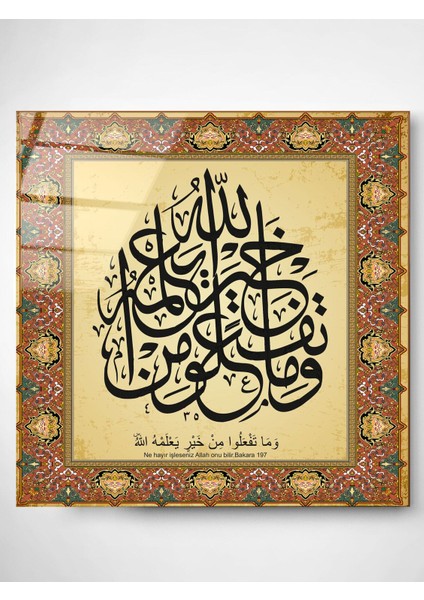 وما تفعلوا من خير يعلمه الله
٤ ٣٥
وَمَا تَفْعَلُوا مِنْ خَيْرٍ يَعْلَمْهُ اللَّهُ
Ne hayır işleseniz Allah onu bilir.Bakara 197